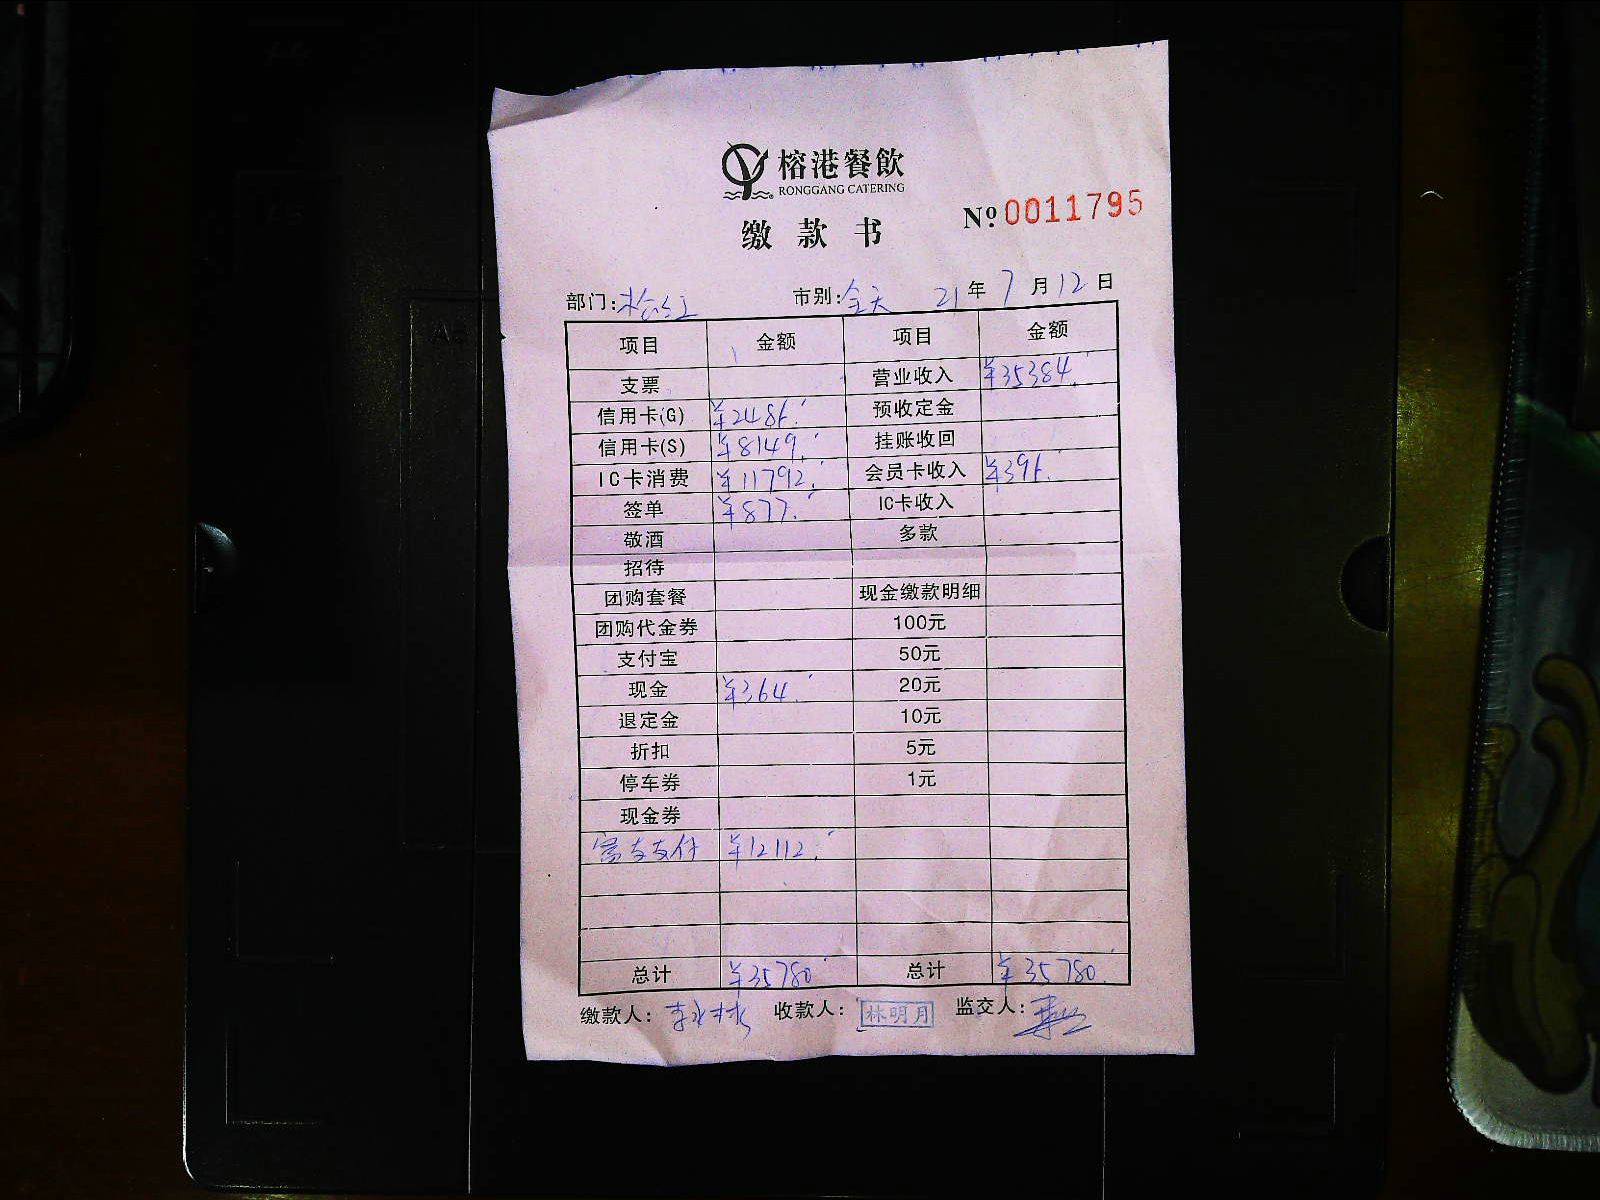 榕港餐飲
RONGGANG CATERING
缴款书
Nº 0011795
部门: 市别:全天 21年7月12日
项目 金额 项目 金额
支票 营业收入 ¥35384.
信用卡(G) ¥2486. 预收定金
信用卡(S) ¥8149. 挂账收回
IC卡消费 ¥11792. 会员卡收入 ¥396.
签单 ¥877. IC卡收入
敬酒 多款
招待
团购套餐 现金缴款明细
团购代金券 100元
支付宝 50元
现金 ¥364. 20元
退定金 10元
折扣 5元
停车券 1元
现金券
富友支付 ¥12112.
总计 ¥35780 总计 ¥35780.
缴款人: 收款人: 林明月 监交人: